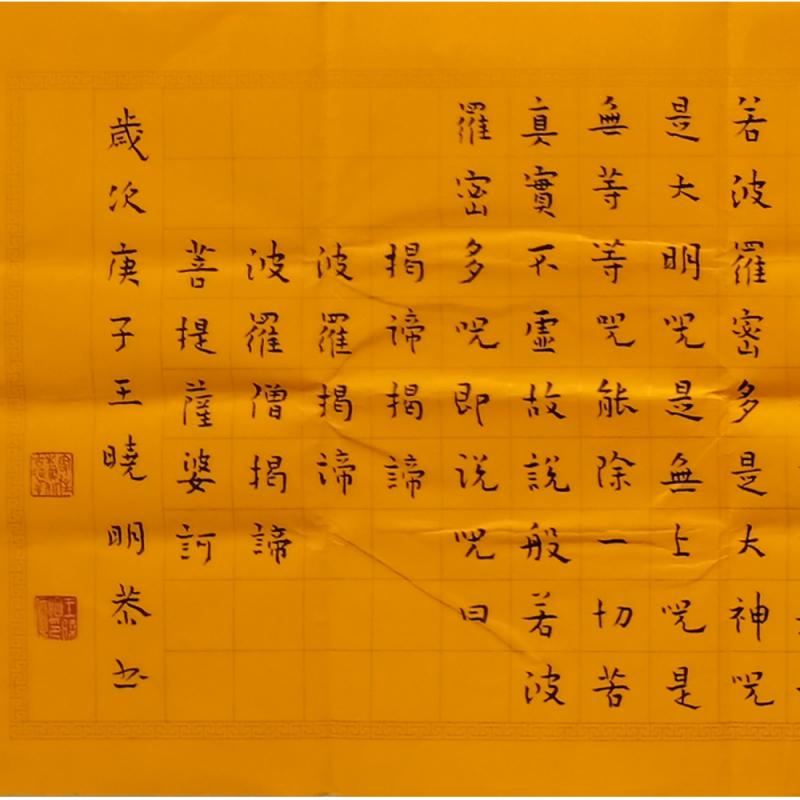 若波羅密多是大神咒
是大明咒是無上咒是
無等等咒能除一切苦
真實不虛故說般若波
羅密多咒即说咒曰
揭諦揭諦
波羅揭諦
波羅僧揭諦
菩提薩婆訶
歲次庚子王曉明恭书